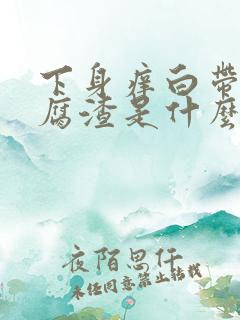 下身痒白带
腐渣是什么
夜陌思仟
未经同意禁止转载